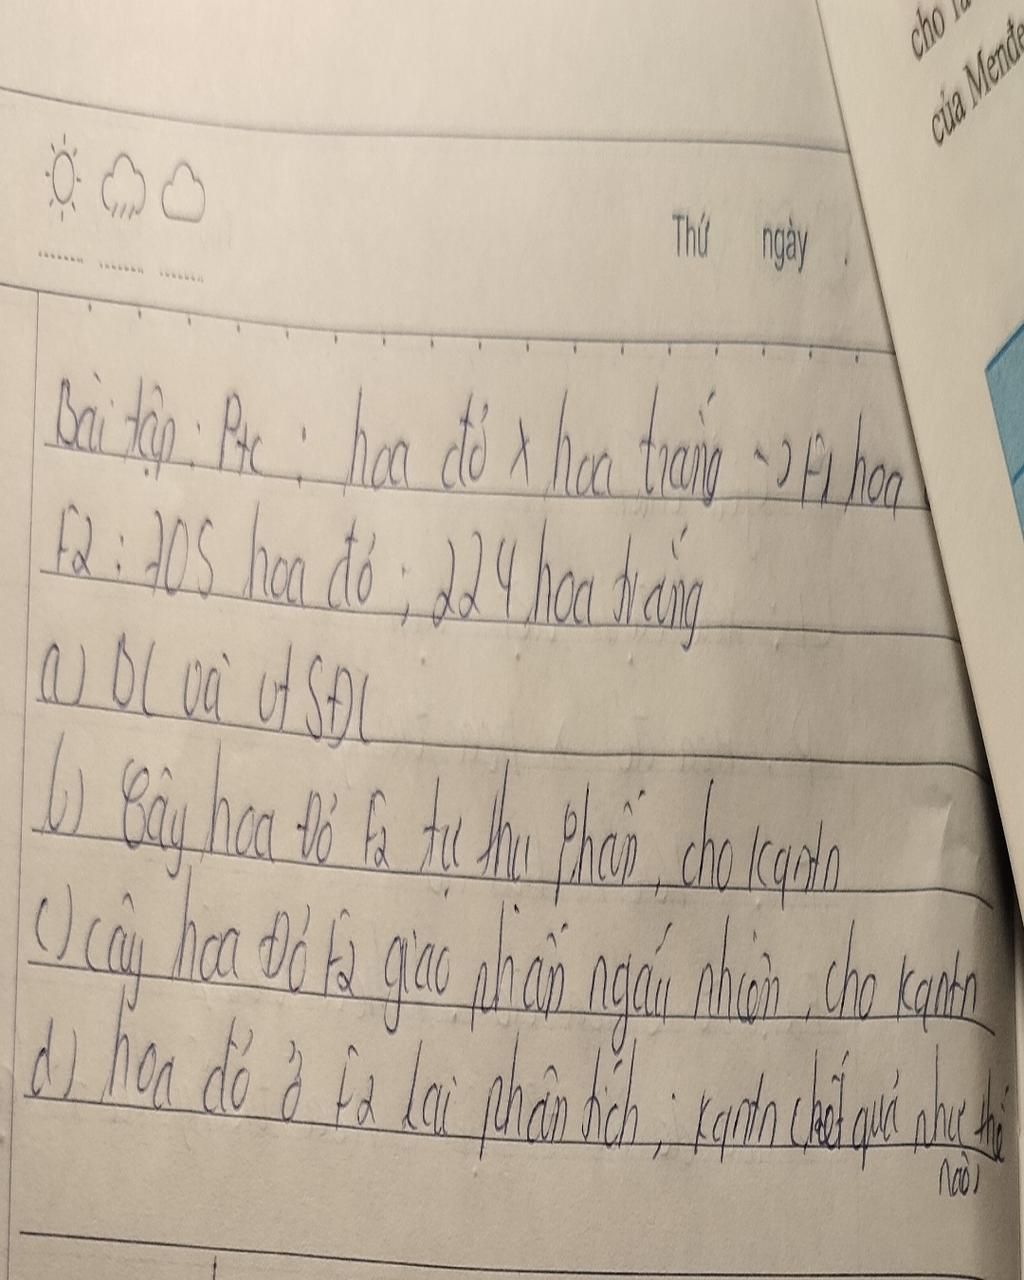 cho
của Mende
Thứ ngày
Bài tập: Ptc: hoa đỏ x hoa trắng -> F1 hoa
F2: 705 hoa đỏ; 224 hoa trắng
a) BL và vt SĐL
b) Cây hoa Đỏ F2 tự thụ phấn, cho kqntn
c) cây hoa Đỏ F2 giao phấn ngẫu nhiên, cho kqntn
d) hoa đỏ ở F2 lai phân tích; kqntn kết quả như thế
nào,